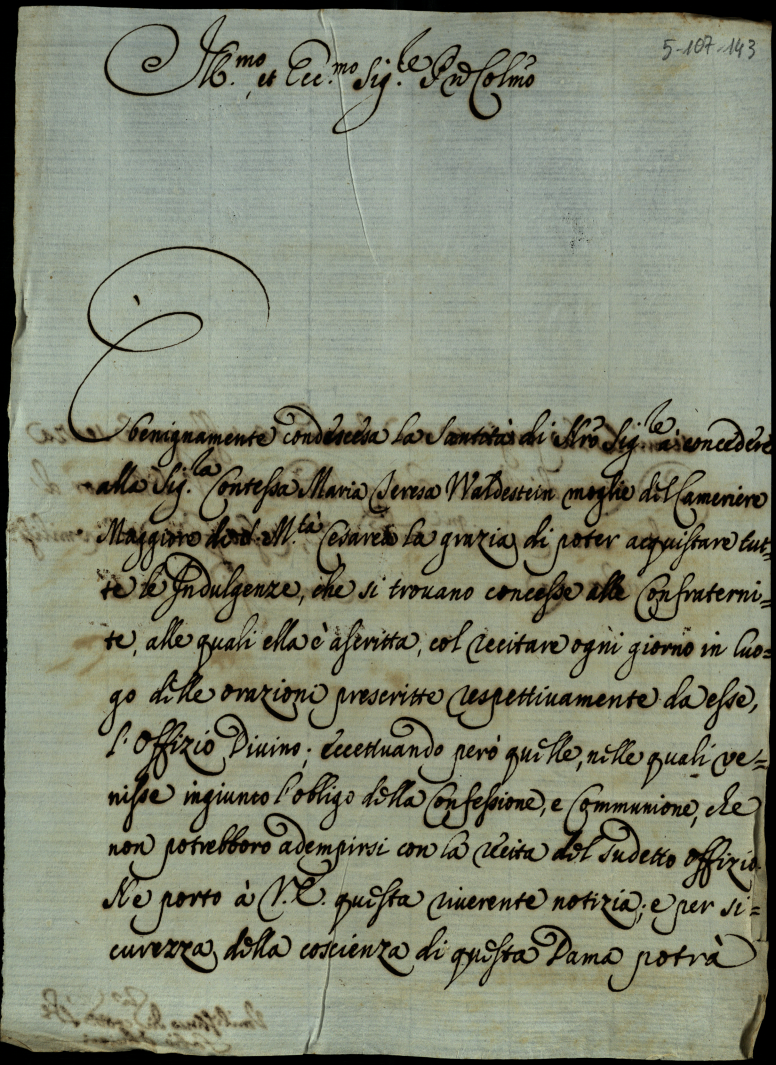 5-107-143
Ill.mo et Ecc.mo Sig.re P[ro]n Col.mo
È benignamente condescesa la Santità di Nrõ Sig.re à concedere
alla Sig.ra Contessa Maria Teresa Waldestein moglie del Cameriere
Maggiore M.tà Cesarea la grazia di poter acquistare tut=
te le Indulgenze, che si trouano concesse alle Confraterni=
te, alle quali ella è ascritta, col recitare ogni giorno in luo=
go delle orazioni prescritte respettiuamente da esse,
l'Offizio Diuino; eccettuando però quelle, nelle quali ve=
nisse ingiunto l'obligo della Confessione, e Communione, che
non potrebboro adempirsi con la recita del sudetto offizio.
Ne porto à V.E. questa riuerente notizia; e per si=
curezza della coscienza di questa Dama potrà